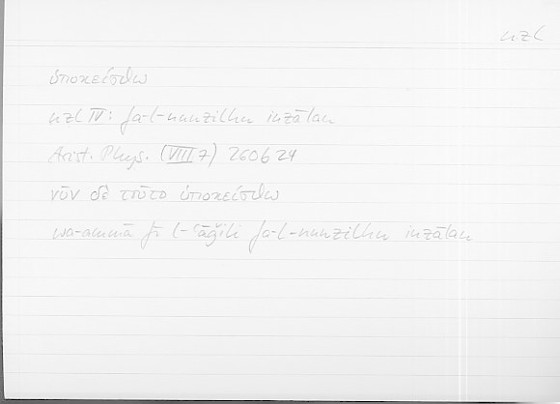 nzl
ὑποκείσθω
nzl IV: fa-l-nunzilhu inzālan
Arist. Phys. (VIII 7) 260b24
νῦν δὲ τοῦτο ὑποκείσθω
wa-ammā fī l-ʿāǧili fa-l-nunzilhu inzālan